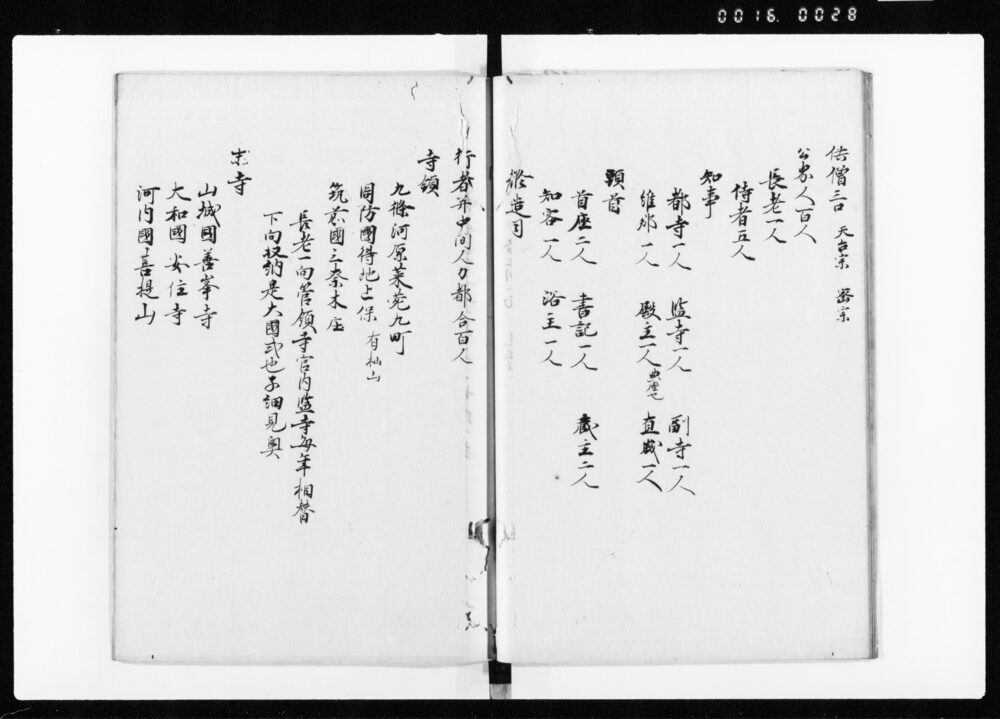 0016.0028
供僧三口 天台宗 密宗
公家人百人
長老一人
侍者五人
知事
都寺一人 監寺一人 副寺一人
維那一人 殿主一人 典座也 直歳一人
頭首
首座二人 書記一人 蔵主二人
知客一人 浴主一人
修造司
行者并中間人力都合百人
寺領
九條河原菜薗九町
周防國得地上保 有杣山
筑前國三奈木庄
長老一向管領寺官内監寺毎年相替
下向収納是大國弐也子細見奥
末寺
山城國善峯寺
大和國安位寺
河内國菩提山